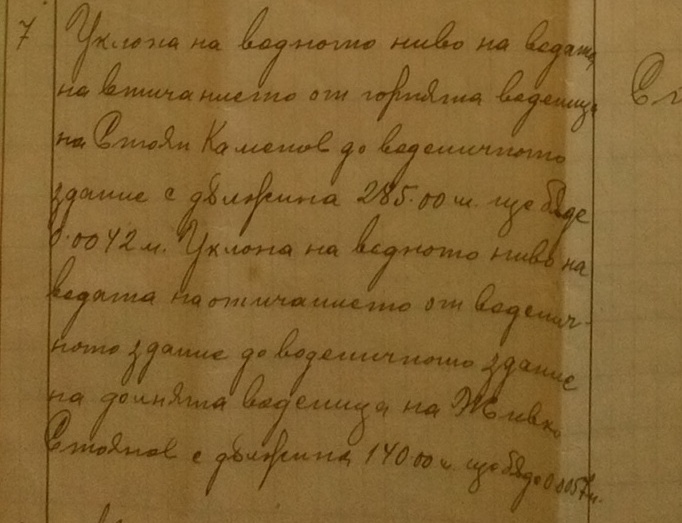 7 Уклона на водното ниво на водата
на втичанието от горнята воденица
на Стоян Каменов до воденичното
здание с дължина 285.00 м. ще бѫде
0.0042 м. Уклона на водното ниво на
водата на отичанието от воденич-
ното здание до воденичното здание
на долнята воденица на Живко
Стоянов с дължина 140.00 м. ще бѫде 0.0057 м.